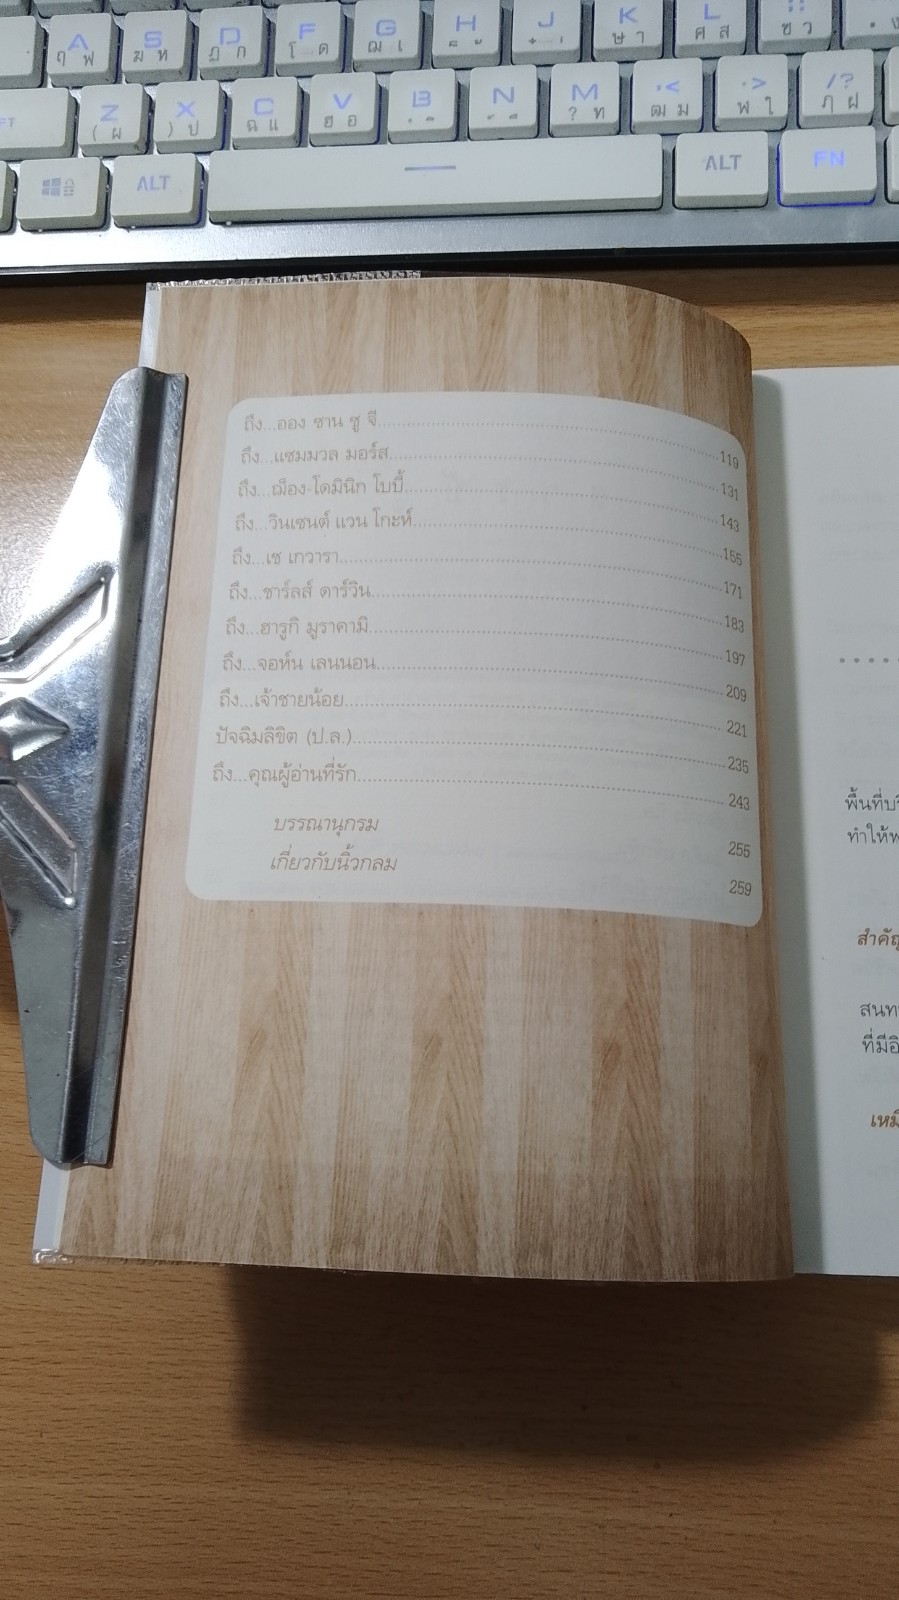 A ฤ ฟ
S ฆ ห
D ฏ ก
F โ ด
G ฌ เ
H
J
K ษ า
L ศ ส
ซ ว
Z ( ผ
X ) ป
C ฉ แ
V ฮ อ
B
N
M ? ท
,< ฒ ม
.> ฬ ใ
/? ฦ ฝ
ALT
ALT
FN
ถึง...ออง ซาน ซู จี 119
ถึง...แซมมวล มอร์ส 131
ถึง...ฌ็อง-โดมินิก โบบี้ 143
ถึง...วินเซนต์ แวน โกะห์ 155
ถึง...เช เกวารา 171
ถึง...ชาร์ลส์ ดาร์วิน 183
ถึง...ฮารูกิ มูราคามิ 197
ถึง...จอห์น เลนนอน 209
ถึง...เจ้าชายน้อย 221
ปัจฉิมลิขิต (ป.ล.) 235
ถึง...คุณผู้อ่านที่รัก 243
บรรณานุกรม 255
เกี่ยวกับนิ้วกลม 259
ทำให้พ
สำคัญ